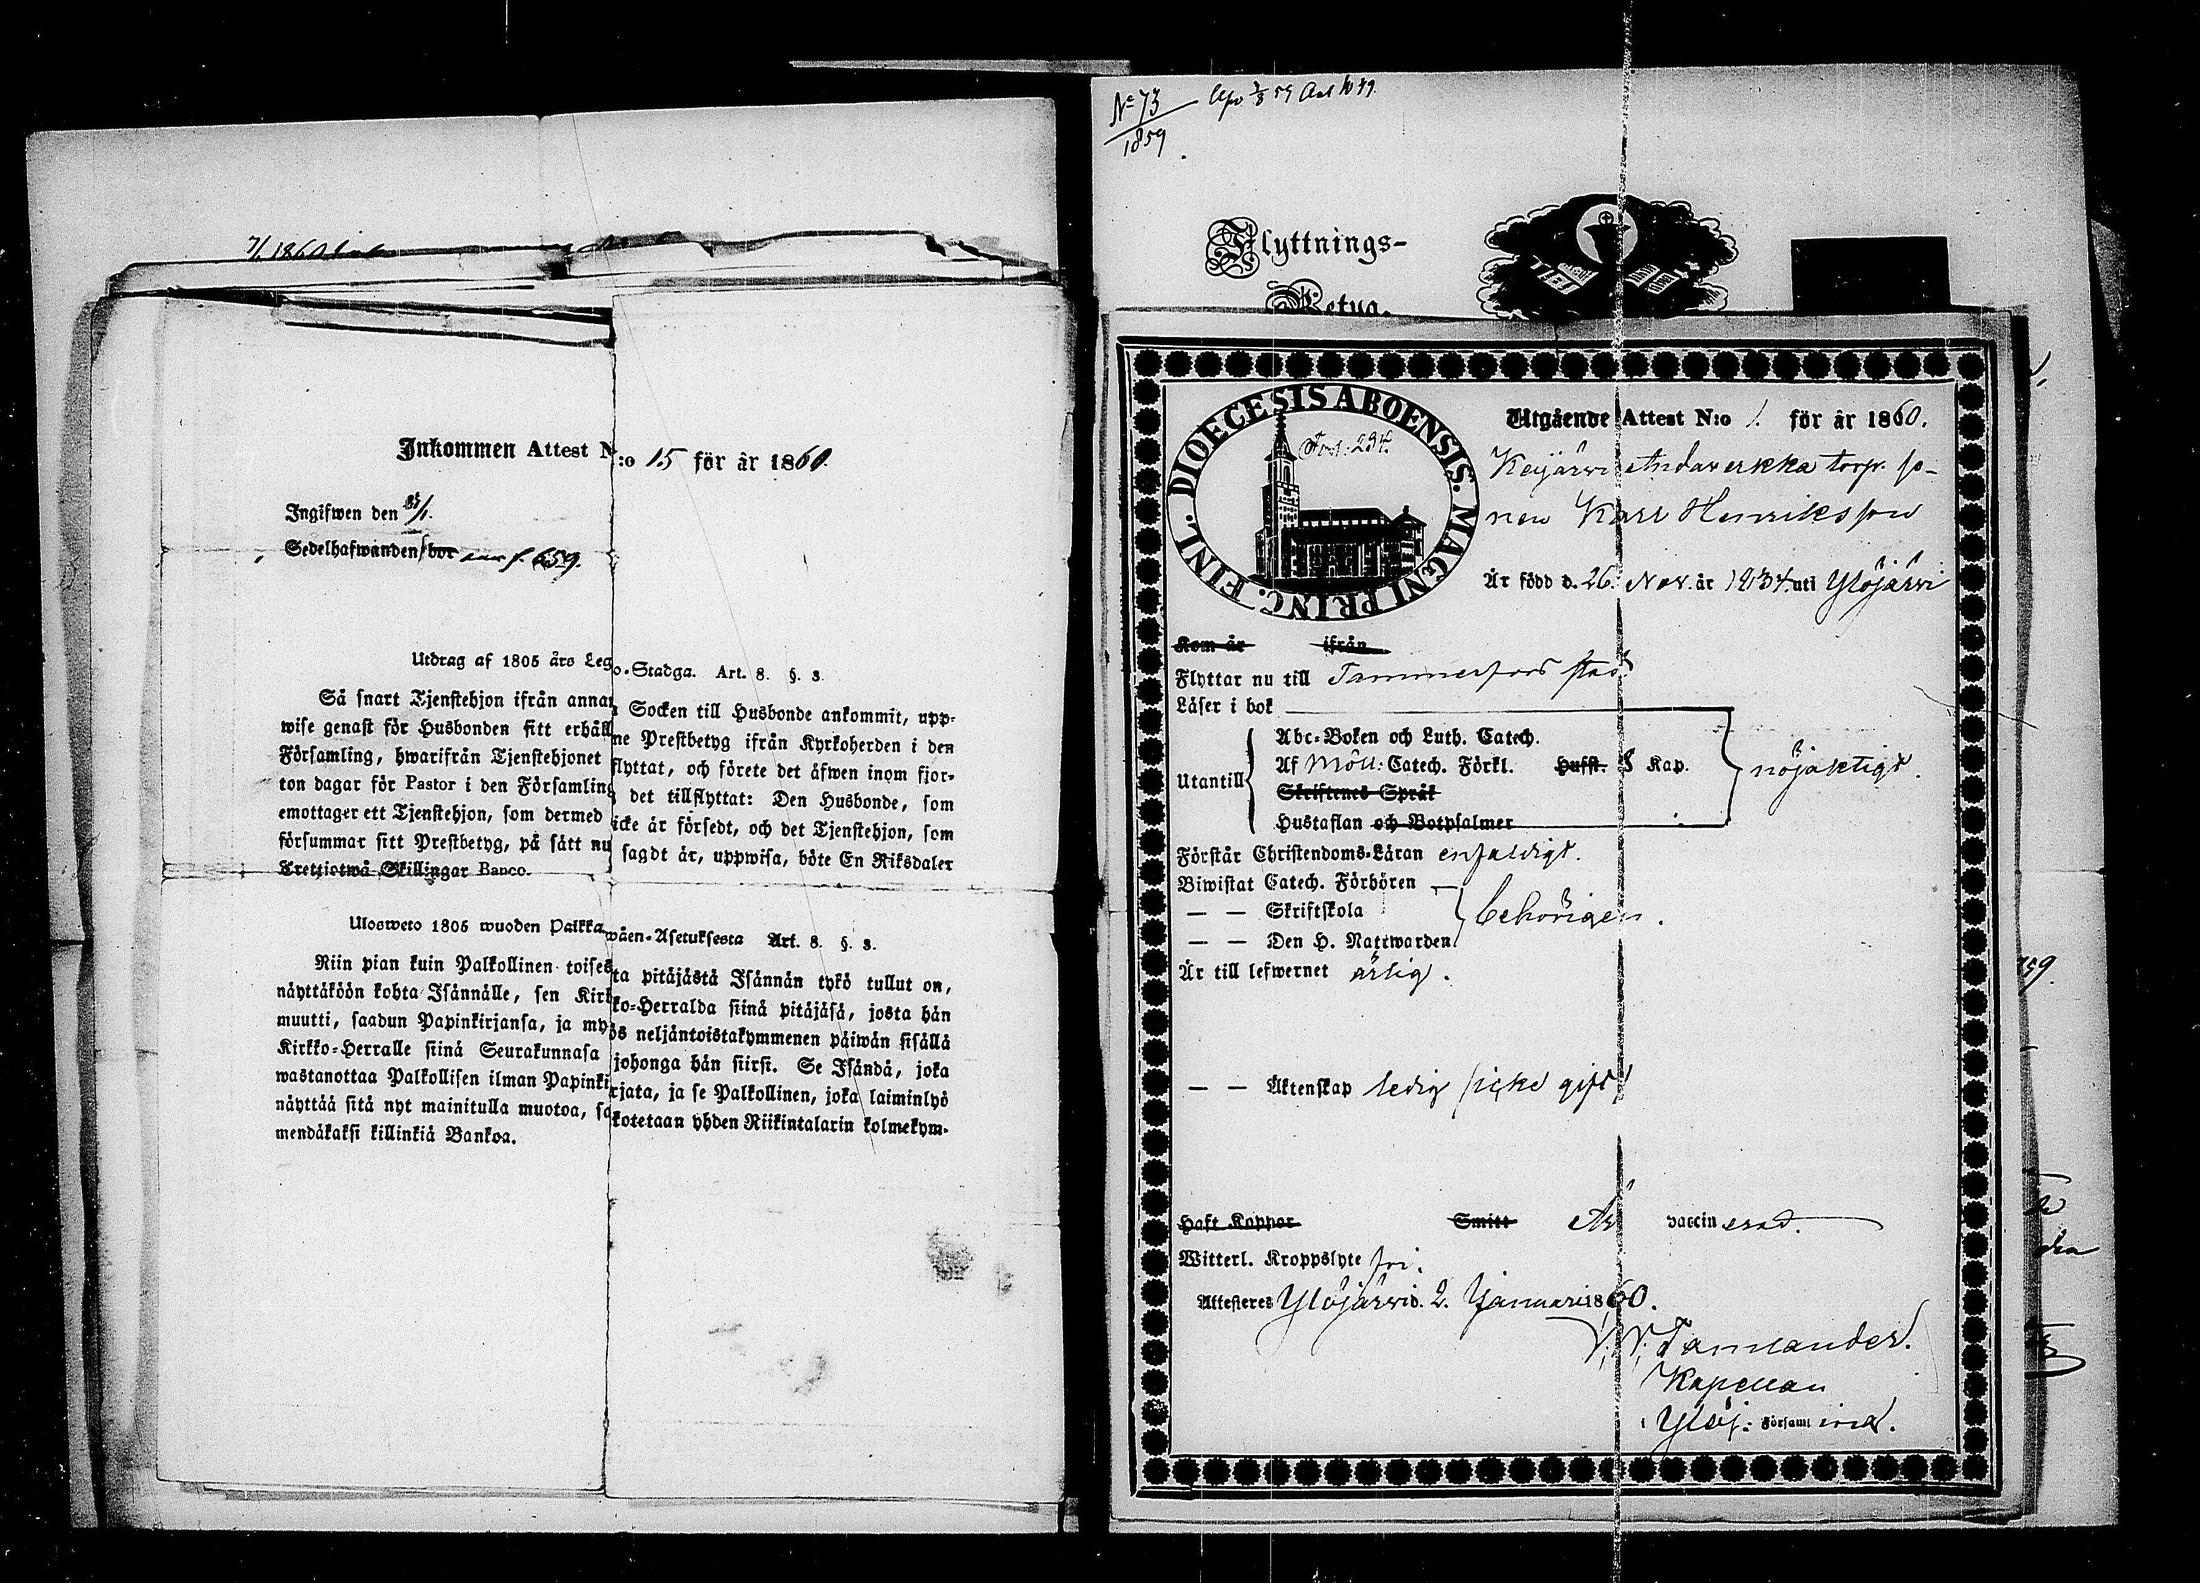 7/1 1860
Inkommen Attest N:o 15 för år 1860.
Ingifwen den 31/1.
Sedelhafwanden bor f. 659.
Utdrag af 1805 års Lego-Stadga. Art. 8. §. 3.
Så snart Tjenstehjon ifrån annan Socken till Husbonde ankommit, upp-
wise genast för Husbonden sitt erhållne Prestbetyg ifrån Kyrkoherden i den
Församling, hwarifrån Tjenstehjonet flyttat, och förete det äfwen inom fjor-
ton dagar för Pastor i den Församling det tillflyttat: Den Husbonde, som
emottager ett Tjenstehjon, som dermed icke är försedt, och det Tjenstehjon, som
försummar sitt Prestbetyg, på sätt nu sagdt är, uppwisa, böte En Riksdaler
Trettiotwå Skillingar Banco.
Ulosweto 1805 wuoden Palkkawäen-Asetuksesta Art. 8. §. 3.
Niin pian kuin Palkollinen toisesta pitäjästä Isännän tykö tullut on,
näyttäköön kohta Isännälle, sen Kirkko-Herralda siinä pitäjäsä, josta hän
muutti, saadun Papinkirjansa, ja myös neljäntoistakymmenen päiwän sisällä
Kirkko-Herralle siinä Seurakunnasa johonga hän siirsi. Se Isändä, joka
wastanottaa Palkollisen ilman Papinkirjata, ja se Palkollinen, joka laiminlyö
näyttää sitä nyt mainitulla muotoa, sakotetaan yhden Riikintalarin kolmekym-
mendäkaksi killinkiä Bankoa.
N:o 73
1859
Flyttnings-
Betyg.
DIOECESIS ABOENSIS. MAGNI PRINC. FINL.
Fol: 234.
Utgående Attest N:o 1. för år 1860.
Keijärvi Andaverkka torp. so-
nen Karl Henriksson
Är född d. 26. Nov. år 1834 uti Ylöjärvi
Kom år ifrån
Flyttar nu till Tammerfors stad
Läser i bok
Abc-Boken och Luth. Catech.
Utantill Af Möll: Catech. Förkl. Hufst. 8 Kap. nöjaktigt.
Skriftenes Språk
Hustaflan och Botpsalmer
Förstår Christendoms-Läran enfaldigt.
Biwistat Catech. Förhören
— — Skriftskola behörigen.
— — Den H. Nattwarden
Är till lefwernet ärlig.
— — Äktenskap ledig (icke gift)
Haft Koppor Smitt Är vaccinerad.
Witterl. Kroppslyte fri.
Attesteres Ylöjärvi d. 2. Januari 1860.
Kapellan
i Ylöj. Församling.
159.